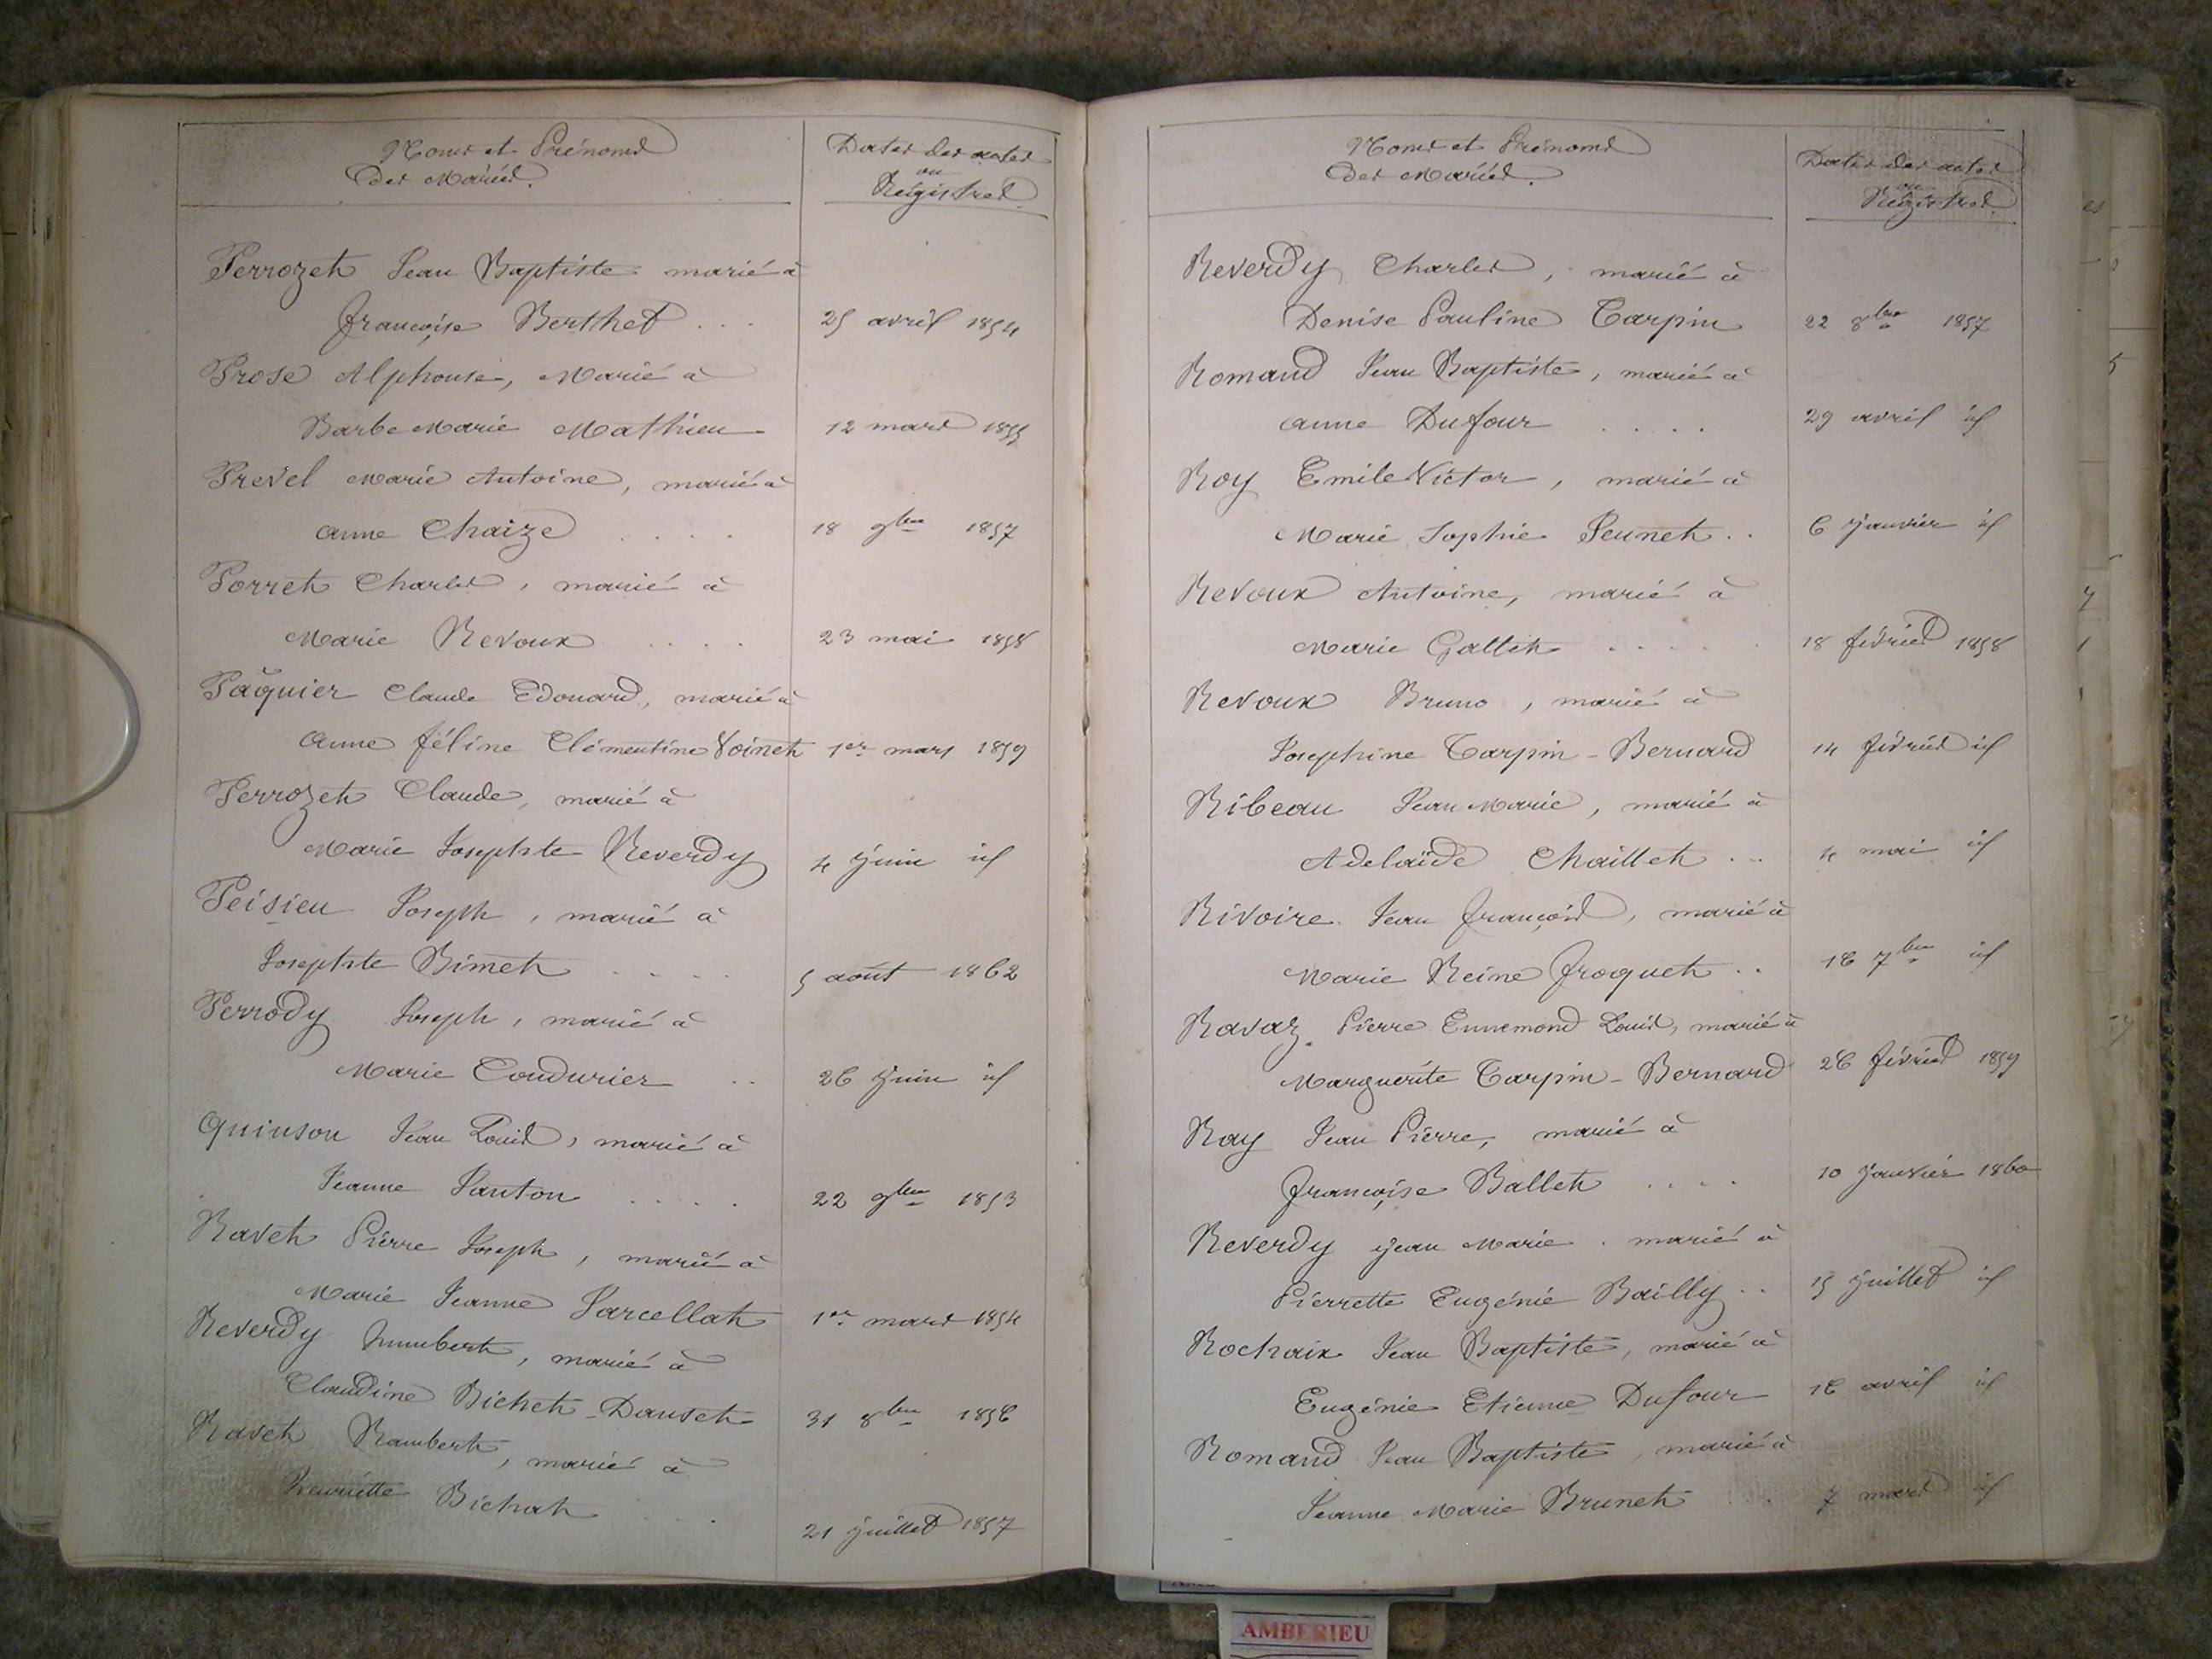 Noms et Prénoms
des Mariés.
Dates des actes
ou
Régistres
Perrozet Jean Baptiste marié à
Françoise Berthet . . . 25 avril 1854
Prose Alphonse, Marié à
Barbe Marie Mathieu 12 mars 1855
Prevel Marie Antoine, marié à
Anne Chaize . . . . 18 9bre 1857
Porret Charles, marié à
Marie Revoux . . . . 23 mai 1858
Pâquier Claude Edouard, marié à
Anne féline Clémentine Voinet 1er mars 1859
Perrozet Claude, marié à
Marie Josephte Reverdy 4 Juin id
Peisieu Joseph, marié à
Josephte Bimet . . . . 5 août 1862
Perrody Joseph, marié à
Marie Coudurier . . 26 Juin id
Quinson Jean Louis, marié à
Jeanne Janton . . . . 22 9bre 1853
Ravet Pierre Joseph, marié à
Marie Jeanne Sarcellat 1er mars 1854
Reverdy humbert, marié à
Claudine Bichet-Danset 31 8bre 1856
Ravet Rambert, marié à
henriette Bichat . . . 21 juillet 1857
Noms et Prénoms
des Mariés.
Dates des actes
ou
Régistres.
Reverdy Charles, marié à
Denise Pauline Carpin 22 8bre 1857
Romand Jean Baptiste, marié à
Anne Dufour . . . . 29 avril id
Roy Emile Victor, marié à
Marie Sophie Jeunet . . 6 Janvier id
Revoux Antoine, marié à
Marie Gallet . . . . . 18 février 1858
Revoux Bruno, marié à
Josephine Carpin-Bernard 14 février id
Ribeau Jean Marie, marié à
Adelaïde Chaillet . . . 4 mai id
Rivoire Jean François, marié à
Marie Reine Froquet . . 16 7bre id
Ravaz Pierre Ennemond Louis, marié à
Marguerite Carpin-Bernard 26 février 1859
Ray Jean Pierre, marié à
Françoise Ballet . . . . 10 Janvier 1860
Reverdy Jean Marie . marié à
Pierrette Eugénie Bailly . . 15 Juillet id
Rochaix Jean Baptiste, marié à
Eugénie Etienne Dufour 16 avril id
Romand Jean Baptiste, marié à
Jeanne Marie Brunet . . . 7 mars id
AMBERIEU